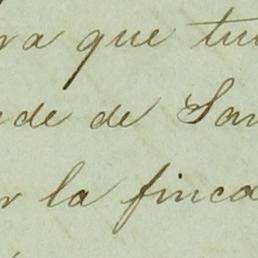 ra que tu
de de San
r la finca